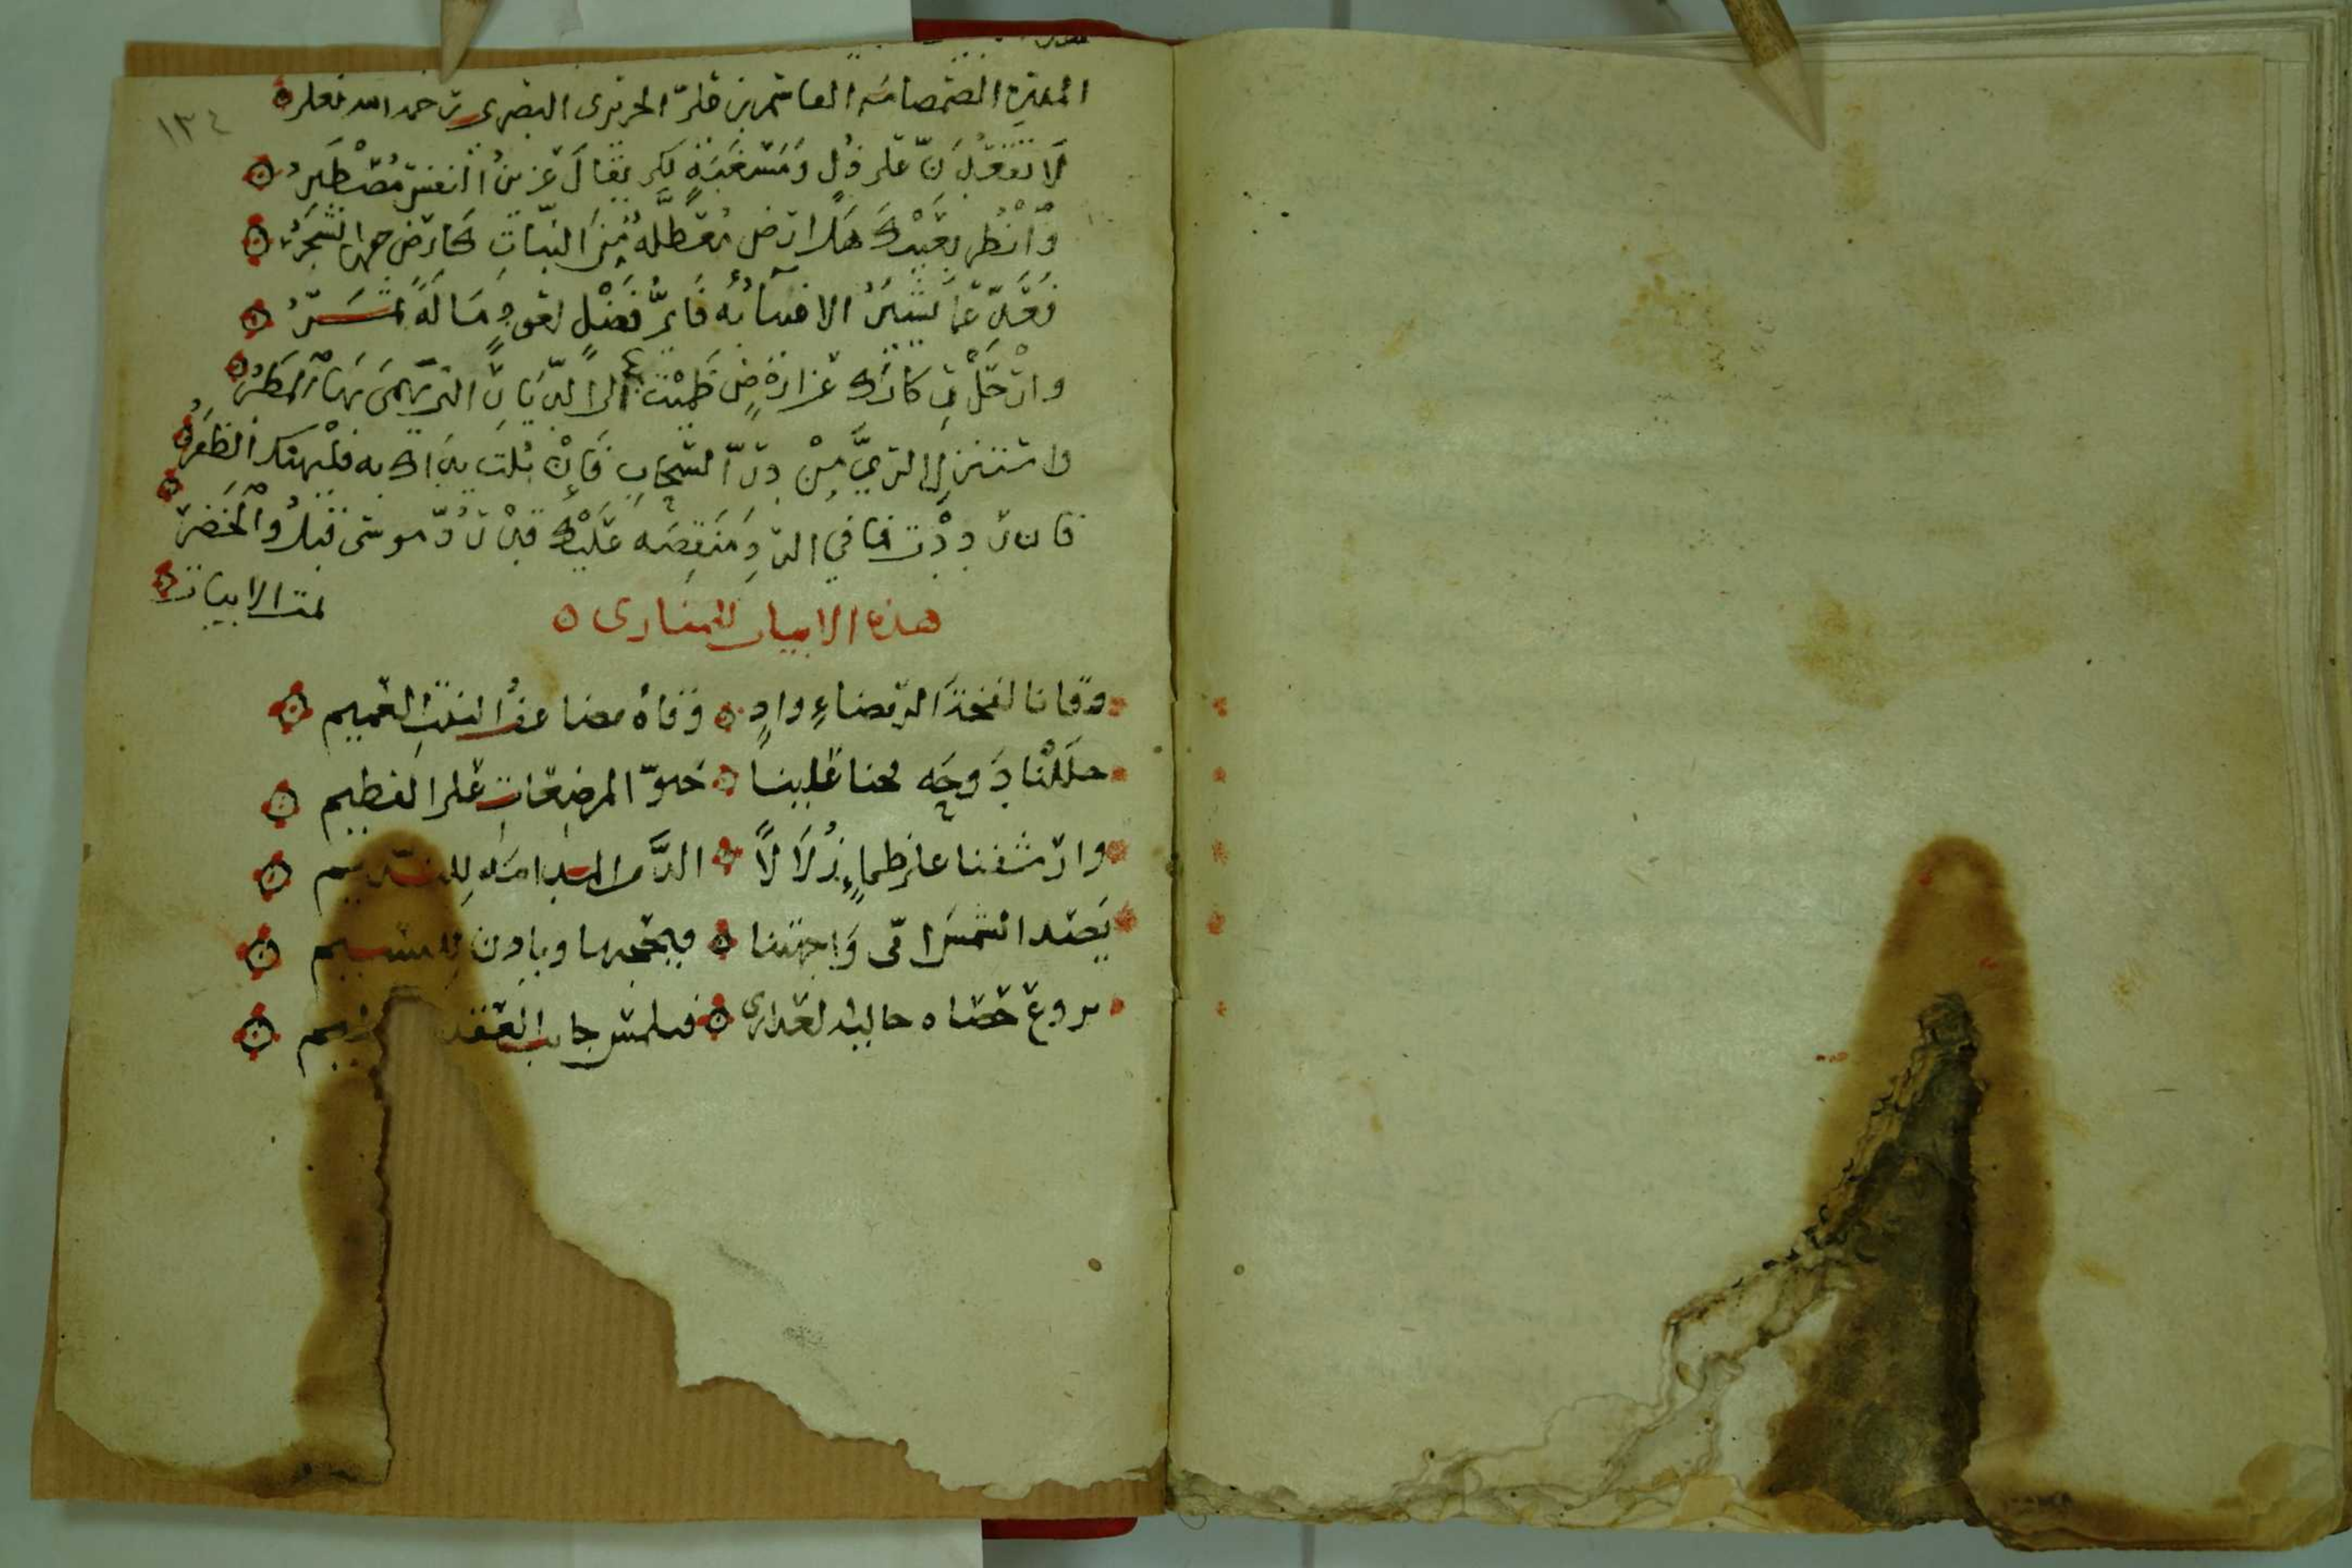 ١٣٤
القاسم بن على الحريرى البصرى رحمه الله تعلى
لَا تقعُدَنّ على ضُرٍّ وَمَسْغَبَةٍ لكى يقالَ عزيزُ النفس مُصْطَبِرُ
وَانْظر بعَيْنِكَ هَل ارض مُعَطَّلَه مِنَ النبَاتِ كارض حفها الشجَرُ
فعَدّ عما تشيرُ الاغبياءُ به فَاىُّ فضْلٍ لعودٍ مَا لَهُ ثمرُ
وارْحَلْ ركابَك عن ارض ظمِئْتَ بها الى الذى يهمى بهِ الْمَطَرُ
واستنزل الرىَّ مِنْ درّ السّحابِ فَإنْ بُلت يداك به فليهنك الظفرُ
فان رددت فما فى الرد مَنقصَه عَلَيْكَ قدْ رُدّ موسَى قبلُ وَالْخَضرُ
تمت الابيات
هذه الابيات للمنازى
وقانا لفحَةَ الرمضاءِ وادٍ وقاهُ مضاعفُ النبتِ العميم
حلَلْنا دَوحَه فحنا علينا حنوّ المرضِعَاتِ على الفطيم
وارشفنا على ظمإٍ زُلَالاً الذَّ من المدامَه لِلنديم
يَصد الشمسَ انى وَاجهتنا فيحجبها وياذن للنسيم
يروع حصاه حاليه العذارى فتلمس جانب العقد